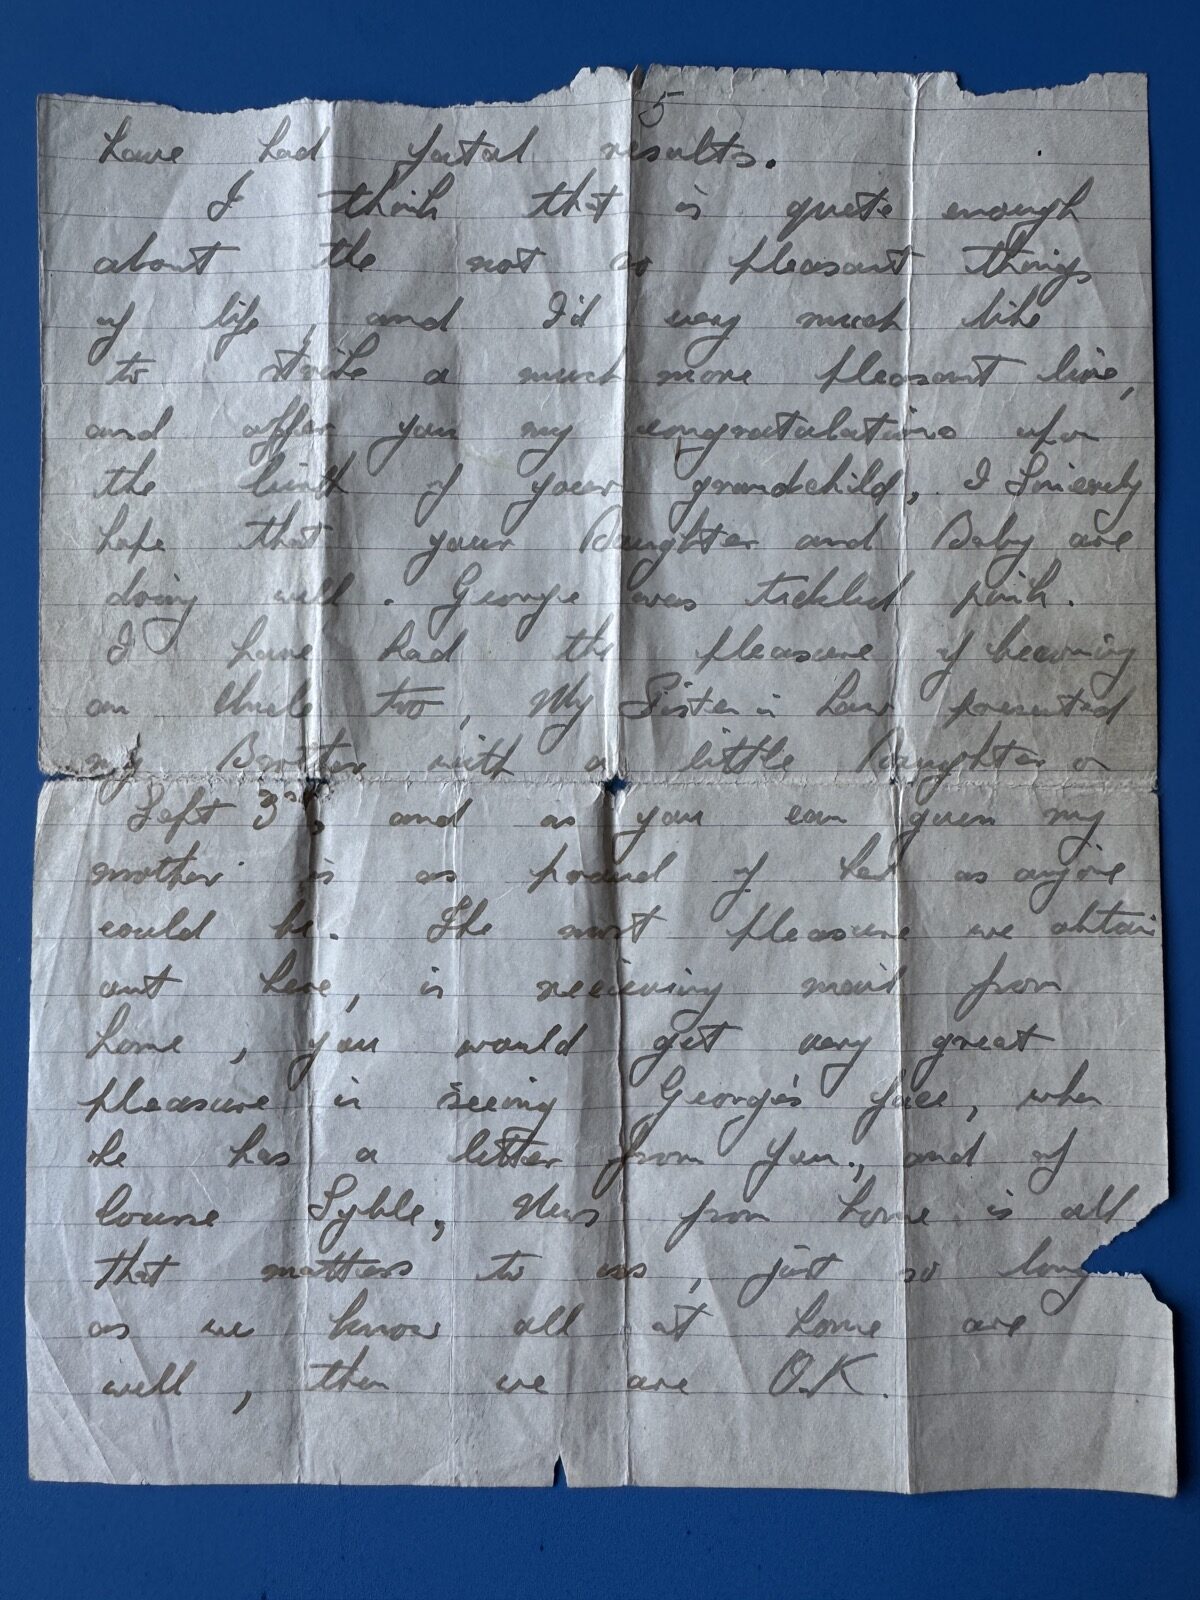 5
have had fatal results.
I think that is quite enough
about the not so pleasant things
of life, and I'd very much like
to strike a much more pleasant line,
and offer you my congratulations upon
the birth of your grandchild, I Sincerely
hope that your Daughter and Baby are
doing well. George was tickled pink.
I have had the pleasure of becoming
an Uncle too, My Sister in Law presented
my Brother with a little Daughter on
Sept 3rd, and as you can guess my
mother is as proud of her as anyone
could be. The most pleasure we obtain
out here, is receiving mail from
home, you would get very great
pleasure in seeing George's face, when
he has a letter from You., and of
course Syble, News from home is all
that matters to us, just so long
as we know all at home are
well, then we are O.K.